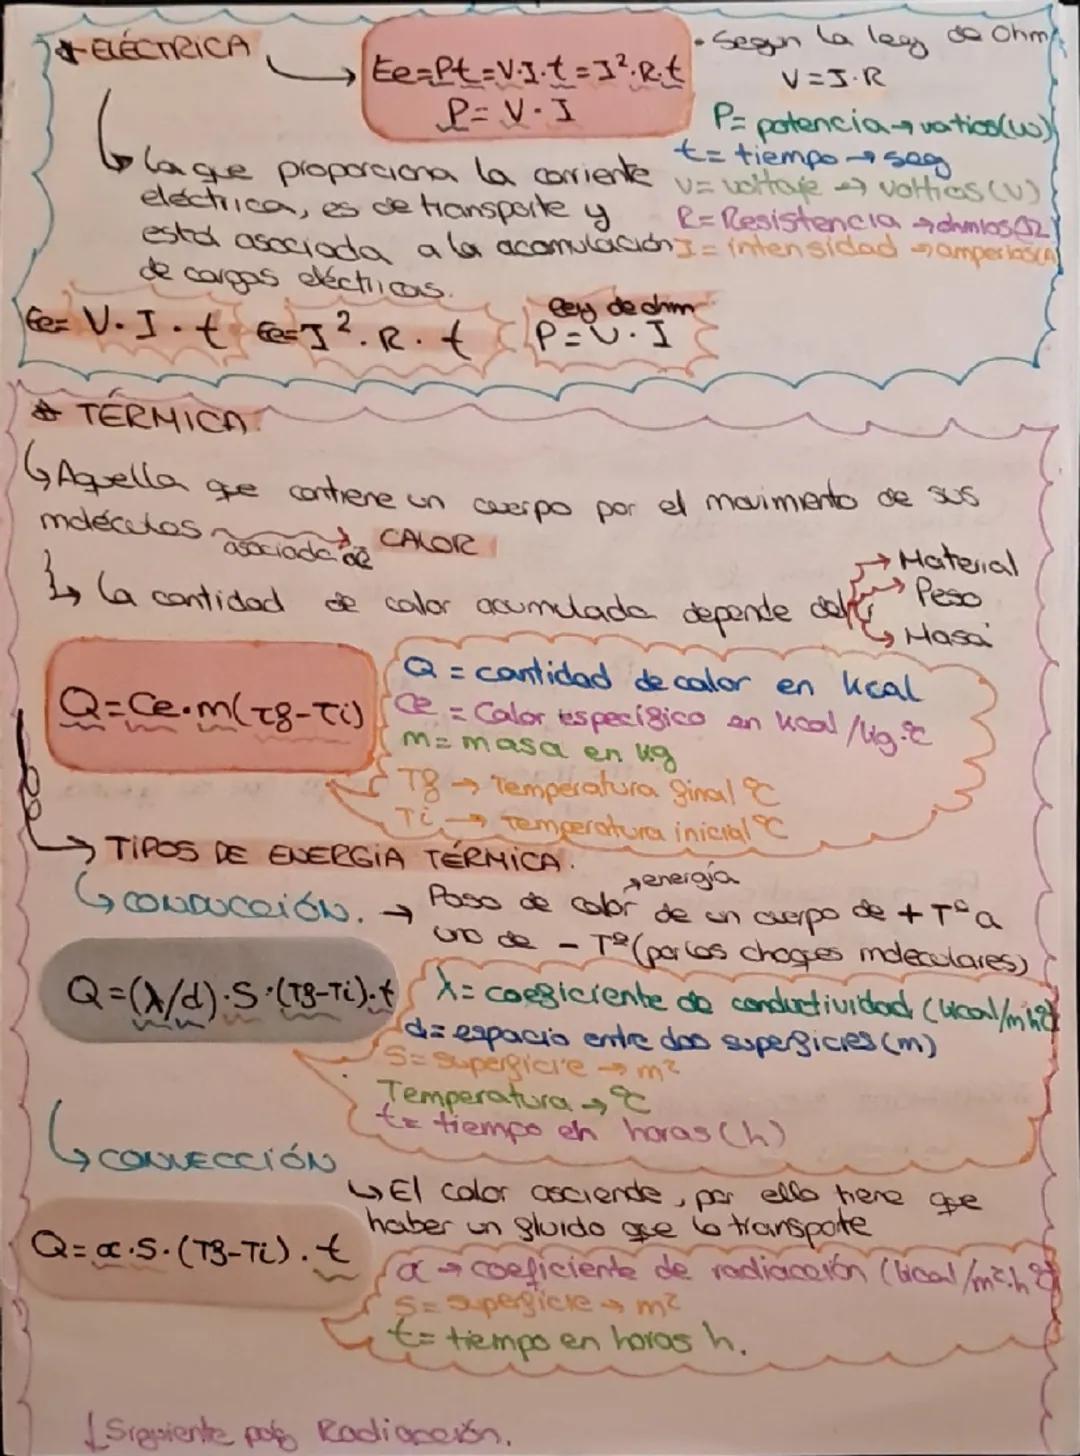 * ELÉCTRICA
Ee=Pt=V·I·t=I²·R·t
P= V·I
• Segun la ley de Ohm
V=I·R
P= potencia→vatios(w)
t= tiempo→seg
V= voltaje→voltios(V)
R=Resistencia→ohmios Ω
I= intensidad→amperios(A)
La que proporciona la corriente
eléctrica, es de transporte y
está asociada a la acomulación
de cargas eléctricas.
Ee= V·I·t
Ee=I²·R·t
ley de ohm
P=V·I
* TÉRMICA
Aquella que contiene un cuerpo por el movimiento de sus
moléculas asociada al CALOR
La cantidad de calor acumulada depende del
→ Material
→ Peso
→ Masa
Q=Ce·m(Tf-Ti)
Q = cantidad de calor en kcal
Ce = Calor específico en kcal/kg·ºC
m= masa en kg
Tf → Temperatura final ºC
Ti → Temperatura inicial ºC
→ TIPOS DE ENERGÍA TÉRMICA.
CONDUCCIÓN. →
→energía
Paso de calor de un cuerpo de + Tº a
uno de - Tº (por los choques moleculares)
Q=(λ/d)·S·(Tf-Ti)·t
λ= coeficiente de conductividad (kcal/mhºC)
d= espacio entre dos superficies (m)
S= superficie → m²
Temperatura → ºC
t= tiempo en horas (h)
CONVECCIÓN
El calor asciende, por ello tiene que
haber un fluido que lo transporte
Q= α·S·(Tf-Ti).t
α → coeficiente de radiación (kcal/m²·hºC)
S= superficie → m²
t= tiempo en horas h.
↓Siguiente pág Radiación.